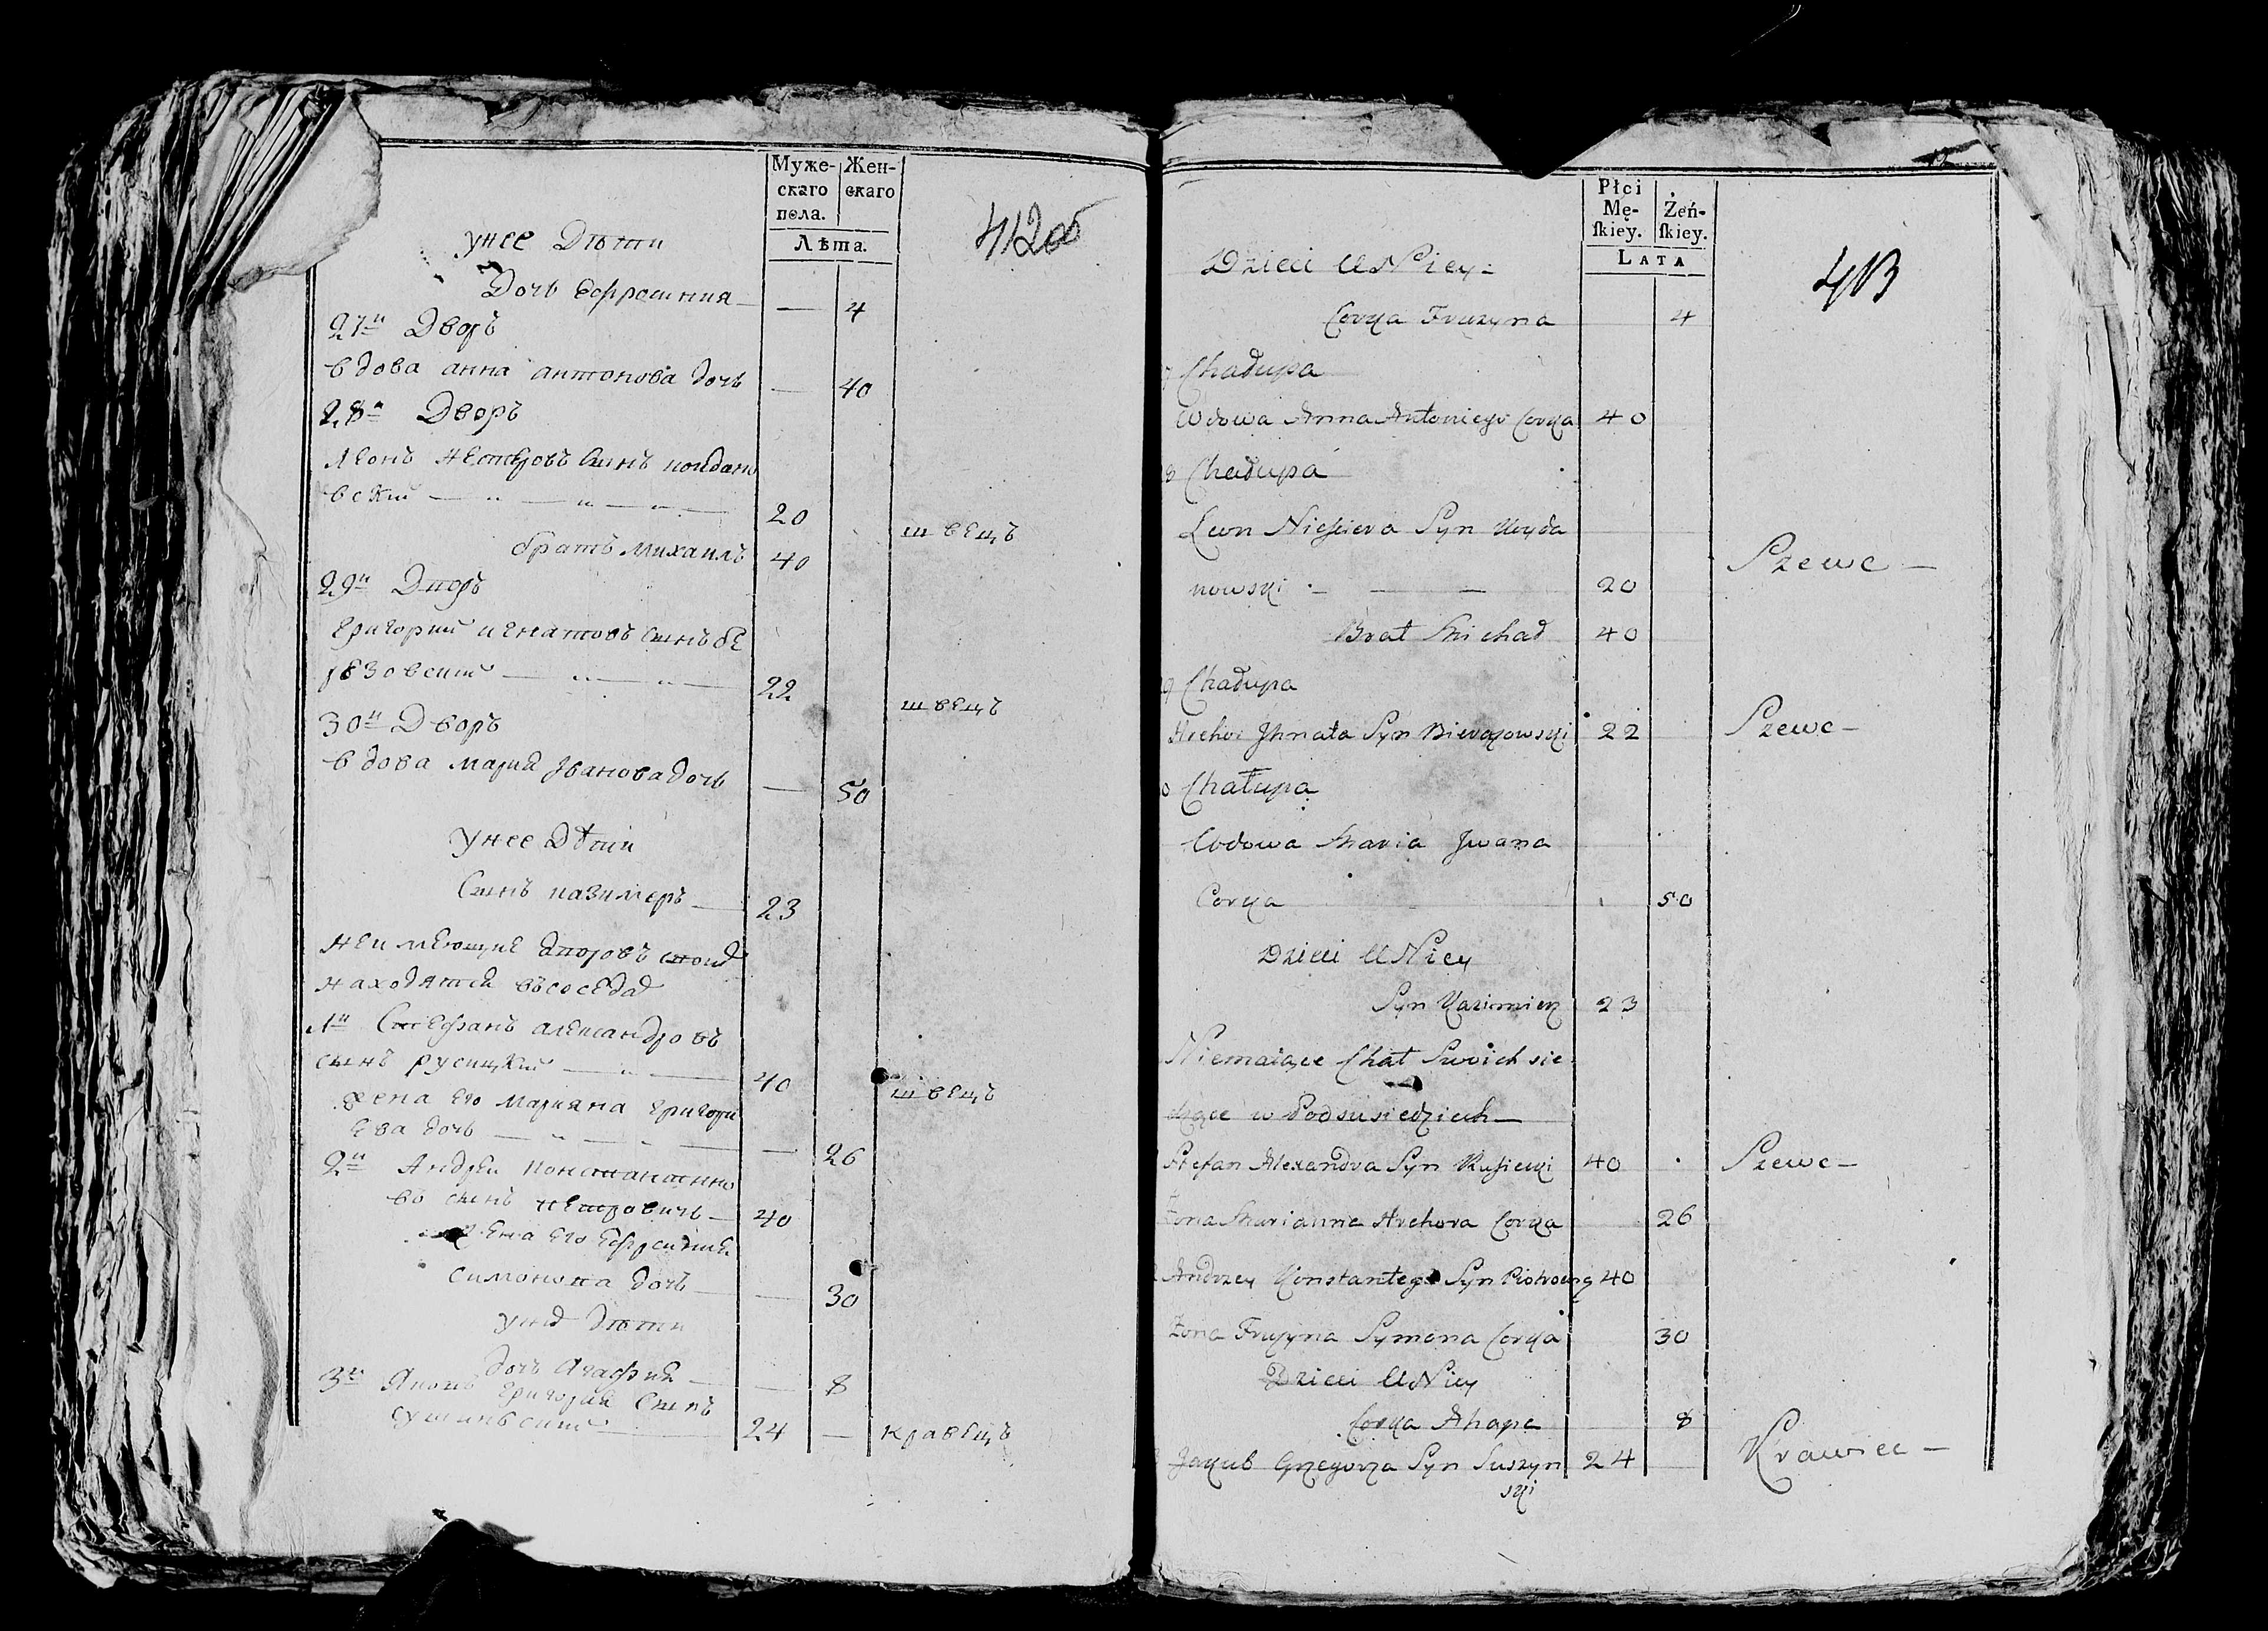 Муже-
скаго
пола.
Жен-
скаго
Лѣта.
412об
унее Дѣти
Дочь Ефросиния — — 4
27й Дворъ
вдова анна антонова дочь — 40
28й Дворъ
Леонъ Нестеровъ сынъ
вский — „ — „ — „ — 20 швецъ
братъ михаилъ 40
29й Дворъ
Григорий игнатовъ сынъ бе
резовский — „ — „ — 22 швецъ
30й Дворъ
вдова мария Іванова дочь — 50
унее Дѣти
Сынъ казимеръ — 23
Неимеющие дворовъ своих
находятся въсоседах
1й Стефанъ александровъ
сынъ русицкий — „ — 40 швецъ
жена его марияна григори
ева дочь — „ — „ — — 26
2й Андрей константино
въ сынъ петровичь — 40
жена его Ефросиния
симонова дочь — — 30
уних дѣти
дочь Агафия — — 8
3й Яковъ григория Сынъ
сушинъский — 24 — кравецъ
Płci
Mę-
ſkiey.
Żeń-
ſkiey.
LATA
413
Dzieci U Niey -
Corka Fruzyna 4
7 Chałupa
Wdowa Anna Antoniego Corka 40
8 Chałupa
Leon Niesciera Syn Kuyda
nowski - — — 20 Szewc —
Brat Michał 40
9 Chałupa
Hrehor Jhnata Syn Bierozowski 22 Szewc —
0 Chałupa
Wdowa Maria Jwana
Corka 50
Dzieci U Niey
Syn Kazimierz 23
Niemaiące Chat Swoich sie
dzące w Podsusiedziech —
Stefan Alexandra Syn Rusiecki 40 Szewc —
Żona Marianna Hrehora Corka 26
Andrzey Konstantego Syn Piotrowicz 40
Żona Fruzyna Symona Corka 30
Dzieci U Niey
Corka Ahapa 8
Jakub Grzegorza Syn Suszyn 24 Krawiec —
ski